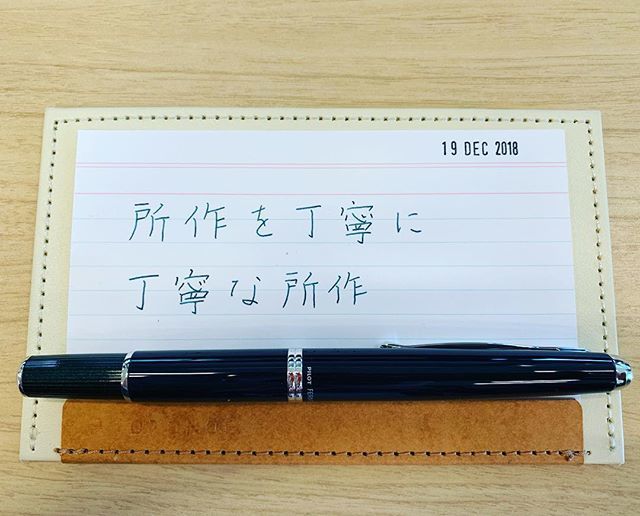 19 DEC 2018
所作を丁寧に
丁寧な所作
PILOT